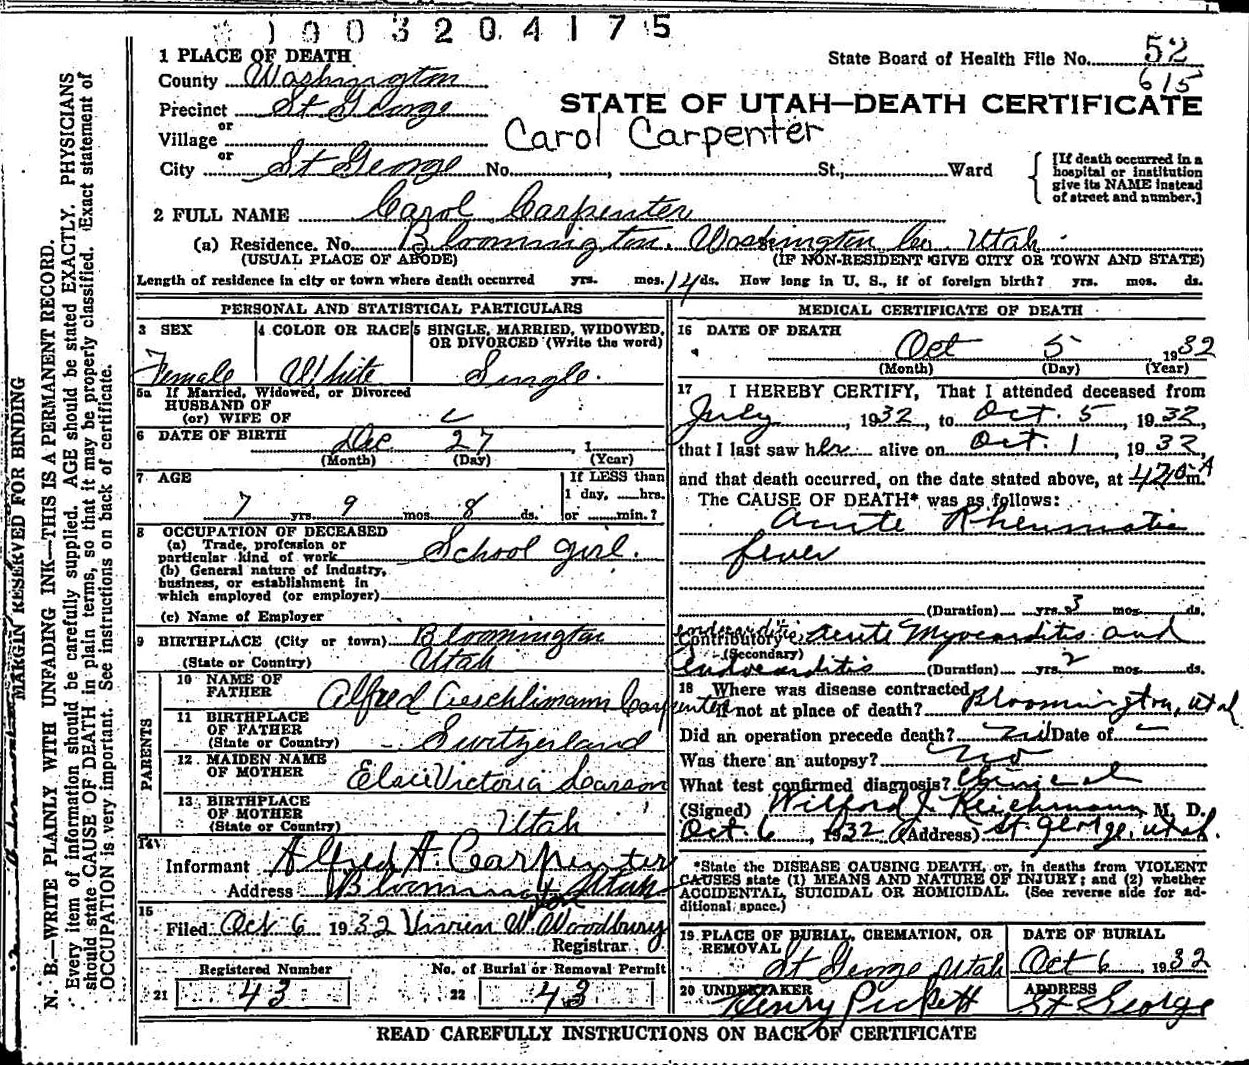 1003204175
1 PLACE OF DEATH
State Board of Health File No. 52
615
County Washington
Precinct St George
STATE OF UTAH—DEATH CERTIFICATE
or
Village
Carol Carpenter
or
City St George No. , St., Ward
[If death occurred in a hospital or institution give its NAME instead of street and number.]
2 FULL NAME Carol Carpenter
(a) Residence. No. Bloomington, Washington Co. Utah
(USUAL PLACE OF ABODE) (IF NON-RESIDENT GIVE CITY OR TOWN AND STATE)
Length of residence in city or town where death occurred yrs. mos. 14 ds. How long in U. S., if of foreign birth? yrs. mos. ds.
PERSONAL AND STATISTICAL PARTICULARS
3 SEX 4 COLOR OR RACE 5 SINGLE, MARRIED, WIDOWED,
OR DIVORCED (Write the word)
Female White Single.
5a If Married, Widowed, or Divorced
HUSBAND OF
(or) WIFE OF
6 DATE OF BIRTH Dec 27, 1
(Month) (Day) (Year)
7 AGE If LESS than
1 day, hrs.
7 yrs. 9 mos. 8 ds. or min.?
8 OCCUPATION OF DECEASED
(a) Trade, profession or
particular kind of work School girl.
(b) General nature of Industry,
business, or establishment in
which employed (or employer)
(c) Name of Employer
9 BIRTHPLACE (City or town) Bloomington
(State or Country) Utah
PARENTS
10 NAME OF
FATHER Alfred Aeschlimann Carpenter
11 BIRTHPLACE
OF FATHER
(State or Country) Switzerland
12 MAIDEN NAME
OF MOTHER Elsie Victoria Larson
13 BIRTHPLACE
OF MOTHER
(State or Country) Utah
14
Informant Alfred A. Carpenter
Address Bloomington Utah
15
Filed Oct 6 1932 Vivien W. Woodbury
Registrar
Registered Number No. of Burial or Removal Permit
21 43 22 43
MEDICAL CERTIFICATE OF DEATH
16 DATE OF DEATH
Oct 5 1932
(Month) (Day) (Year)
17 I HEREBY CERTIFY, That I attended deceased from
July, 1932, to Oct. 5, 1932,
that I last saw her alive on Oct. 1, 1932,
and that death occurred, on the date stated above, at 420 A m.
The CAUSE OF DEATH* was as follows:
Acute Rheumatic
fever
(Duration) yrs. 3 mos. ds.
Contributory Acute Myocarditis and
(Secondary)
Endocarditis (Duration) yrs. 2 mos. ds.
18 Where was disease contracted
if not at place of death? Bloomington, Utah
Did an operation precede death? Date of
Was there an autopsy? No
What test confirmed diagnosis? Clinical
(Signed) Wilford J. Reichmann M. D.
Oct. 6, 1932 (Address) St. George, Utah.
*State the DISEASE CAUSING DEATH, or, in deaths from VIOLENT
CAUSES state (1) MEANS AND NATURE OF INJURY; and (2) whether
ACCIDENTAL, SUICIDAL OR HOMICIDAL. (See reverse side for ad-
ditional space.)
19 PLACE OF BURIAL, CREMATION, OR
REMOVAL DATE OF BURIAL
St George Utah Oct 6 1932
20 UNDERTAKER ADDRESS
Henry Pickett St George
READ CAREFULLY INSTRUCTIONS ON BACK OF CERTIFICATE
MARGIN RESERVED FOR BINDING
N. B.—WRITE PLAINLY WITH UNFADING INK—THIS IS A PERMANENT RECORD.
Every item of information should be carefully supplied. AGE should be stated EXACTLY. PHYSICIANS
should state CAUSE OF DEATH in plain terms, so that it may be properly classified. Exact statement of
OCCUPATION is very important. See instructions on back of certificate.